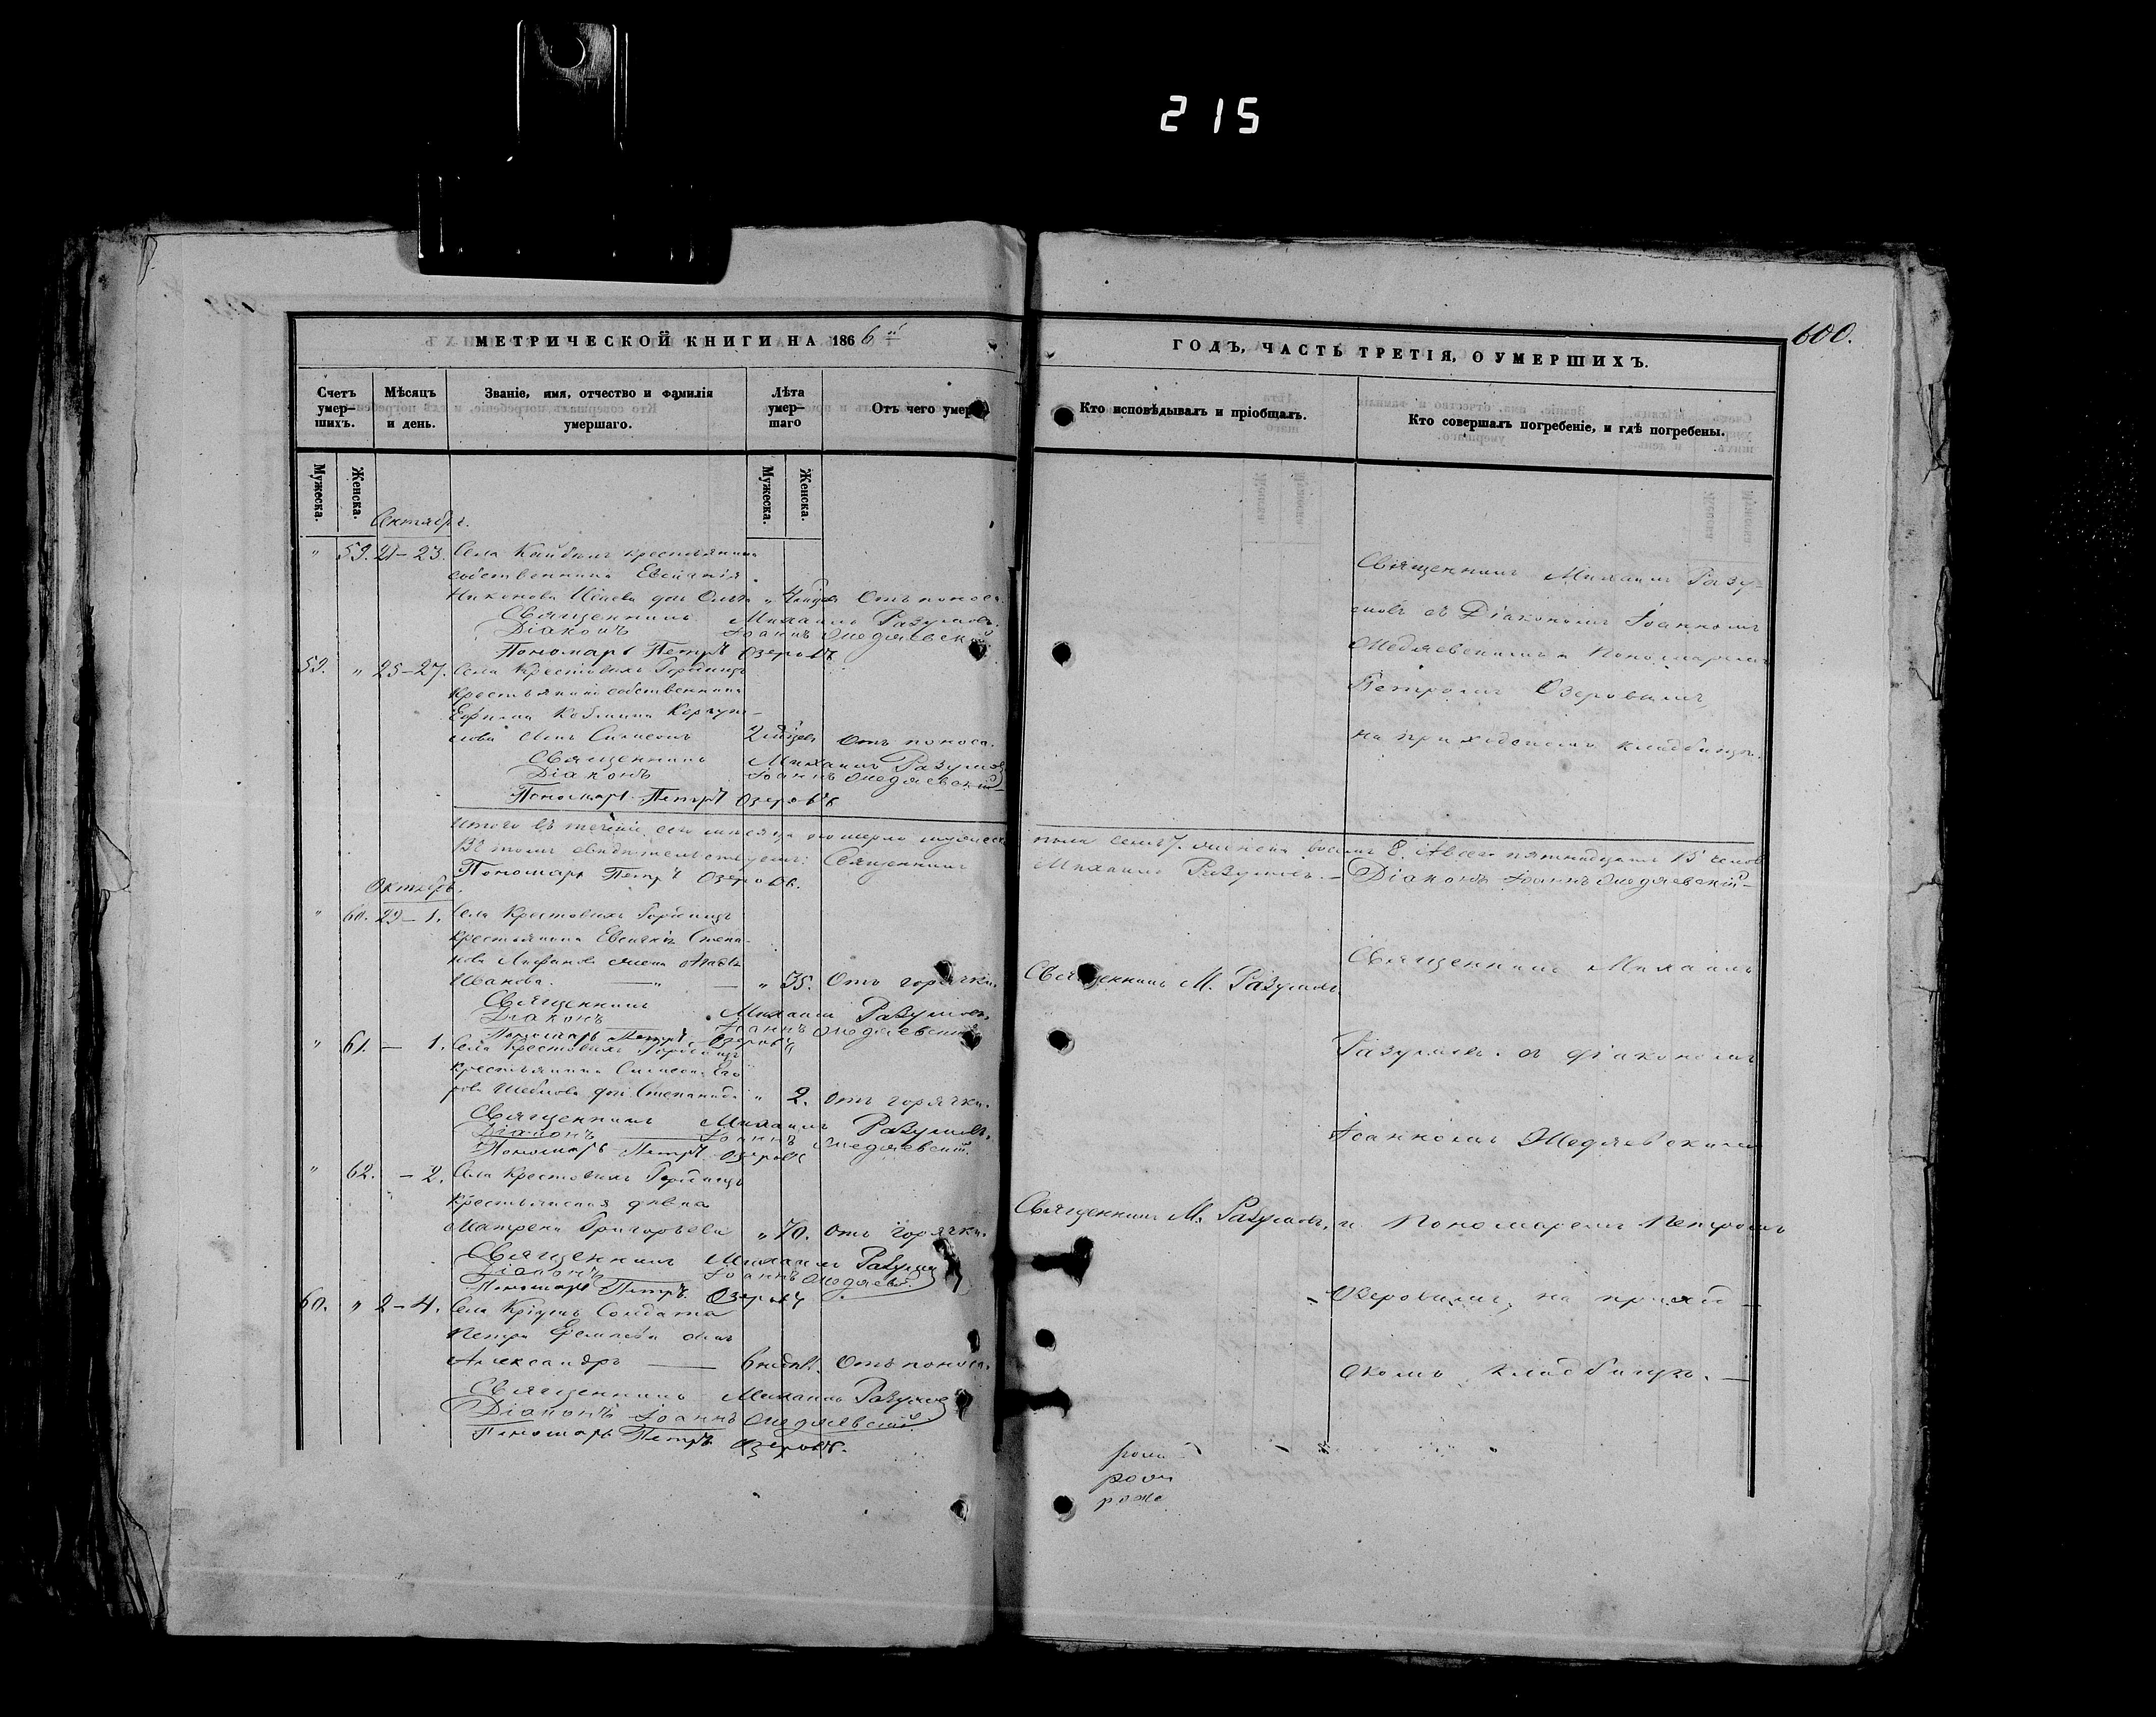 215
600.
МЕТРИЧЕСКОЙ КНИГИ НА 1866й
ГОДЪ, ЧАСТЬ ТРЕТІЯ, О УМЕРШИХЪ.
Счетъ умер–шихъ.
Мѣсяцъ и день.
Званіе, имя, отчество и фамилія умершаго.
Лѣта умер–шаго
Отъ чего умеръ
Кто исповѣдывалъ и пріобщалъ.
Кто совершалъ погребеніе, и гдѣ погребены.
Мужеска.
Женска.
Мужеска.
Женска.
Сентябрь.
" 59. 21–23. Села крестьянина
собственника Евсигнія
Никонова дочь Ольга " Отъ поноса.
Священникъ Михаилъ Разумовъ.
Діаконъ Іоаннъ Медяевскій
Пономарь Петръ Озеровъ
Священникъ Михаилъ Разу–
мовъ съ Діакономъ Іоанномъ
Медяевскимъ и Пономаремъ
Петромъ Озеровымъ,
на приходскомъ кладбищѣ.
59. " 25–27. Села Крестовыхъ Городищъ
крестьянина собственника
Ефима Козмина
сынъ Симеонъ Отъ поноса.
Священникъ Михаилъ Разумовъ
Діаконъ Іоаннъ Медяевскій
Пономарь Петръ Озеровъ
Итого въ теченіе сего мѣсяца померло мужеска
пола семь 7. женска восемь 8. А всего пятнадцать 15 челов.
Въ томъ свидѣтельствуемъ: Священникъ
Михаилъ Разумовъ. – Діаконъ Іоаннъ Медяевскій –
Пономарь Петръ Озеровъ.
Октябрь.
" 60. 29–1. Села Крестовыхъ Городищъ
крестьянина Евсигнія Степа–
нова жена
Иванова. — " — " 35. Отъ горячки.
Священникъ М. Разумовъ.
Священникъ Михаилъ Разумовъ.
Діаконъ Іоаннъ Медяевскій
Пономарь Петръ Озеровъ
Священникъ Михаилъ
Разумовъ съ діакономъ
Іоанномъ Медяевскимъ
и Пономаремъ Петромъ
Озеровымъ, на приход–
скомъ кладбищѣ. —
" 61. — 1. Села Крестовыхъ Городищъ
крестьянина Симеона Его
рова дочь Степанида " 2. Отъ горячки.
Священникъ Михаилъ Разумовъ.
Діаконъ Іоаннъ Медяевскій.
Пономарь Петръ Озеровъ
" 62. – 2. Села Крестовыхъ Городищъ
крестьянская дѣвка
Матрена Григорьева " 70. Отъ горячки.
Священникъ М. Разумовъ.
Священникъ Михаилъ Разумовъ
Діаконъ Іоаннъ Медяевскій.
Пономарь Петръ Озеровъ
60. " 2–4. Села Солдата
Петра сынъ
Александръ —— 6 недѣл. Отъ поноса.
Священникъ Михаилъ Разумовъ
Діаконъ Іоаннъ Медяевскій
Пономарь Петръ Озеровъ.